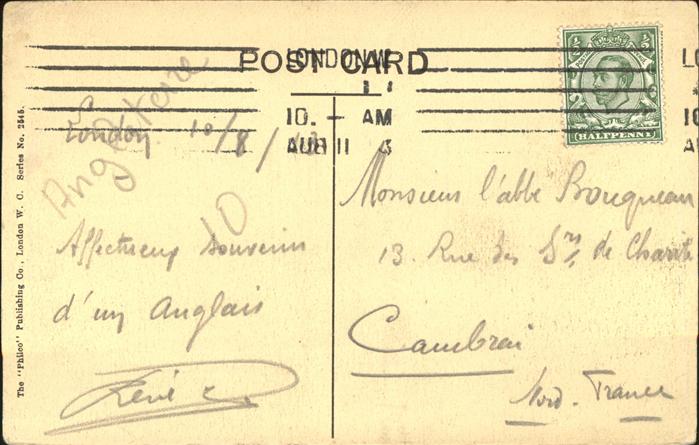 POST CARD
LONDON.W.
10. - AM
AUG 11 3
LO
10
AU
½ ½
POSTAGE
HALFPENNY
Angleterre
London 10/8/13
10
Affectueux souvenir
d'un Anglais
René
Monsieur l'abbé Bouqueau
13. Rue des Srs de Charité
Cambrai
Nord. France
The "Philco" Publishing Co., London W. C. Series No. 2545.